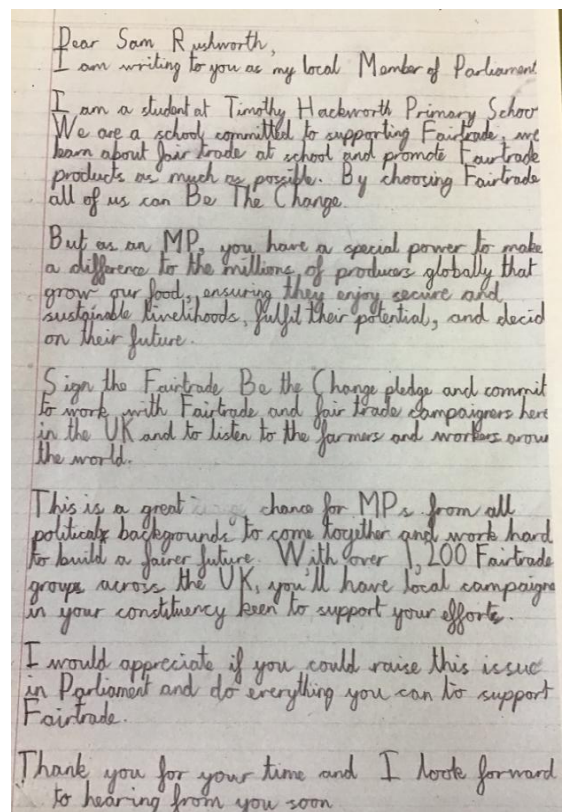 Dear Sam Rushworth,
I am writing to you as my local Member of Parliament
I am a student at Timothy Hackworth Primary Schoo
We are a school committed to supporting Fairtrade, we
learn about fair trade at school and promote Fairtrade
products as much as possible. By choosing Fairtrade
all of us can Be The Change.
But as an MP, you have a special power to make
a difference to the millions of producers globally that
grow our food, ensuring they enjoy secure and
sustainable livelihoods, fulfil their potential, and decid
on their future.
Sign the Fairtrade Be the Change pledge and commit
to work with Fairtrade and fair trade campaigners here
in the UK and to listen to the farmers and workers aroun
the world.
This is a great chance for MPs from all
political backgrounds to come together and work hard
to build a fairer future. With over 1,200 Fairtrade
groups across the UK, you'll have local campaigne
in your constituency keen to support your efforts.
I would appreciate if you could raise this issue
in Parliament and do everything you can to support
Fairtrade.
Thank you for your time and I look forward
to hearing from you soon